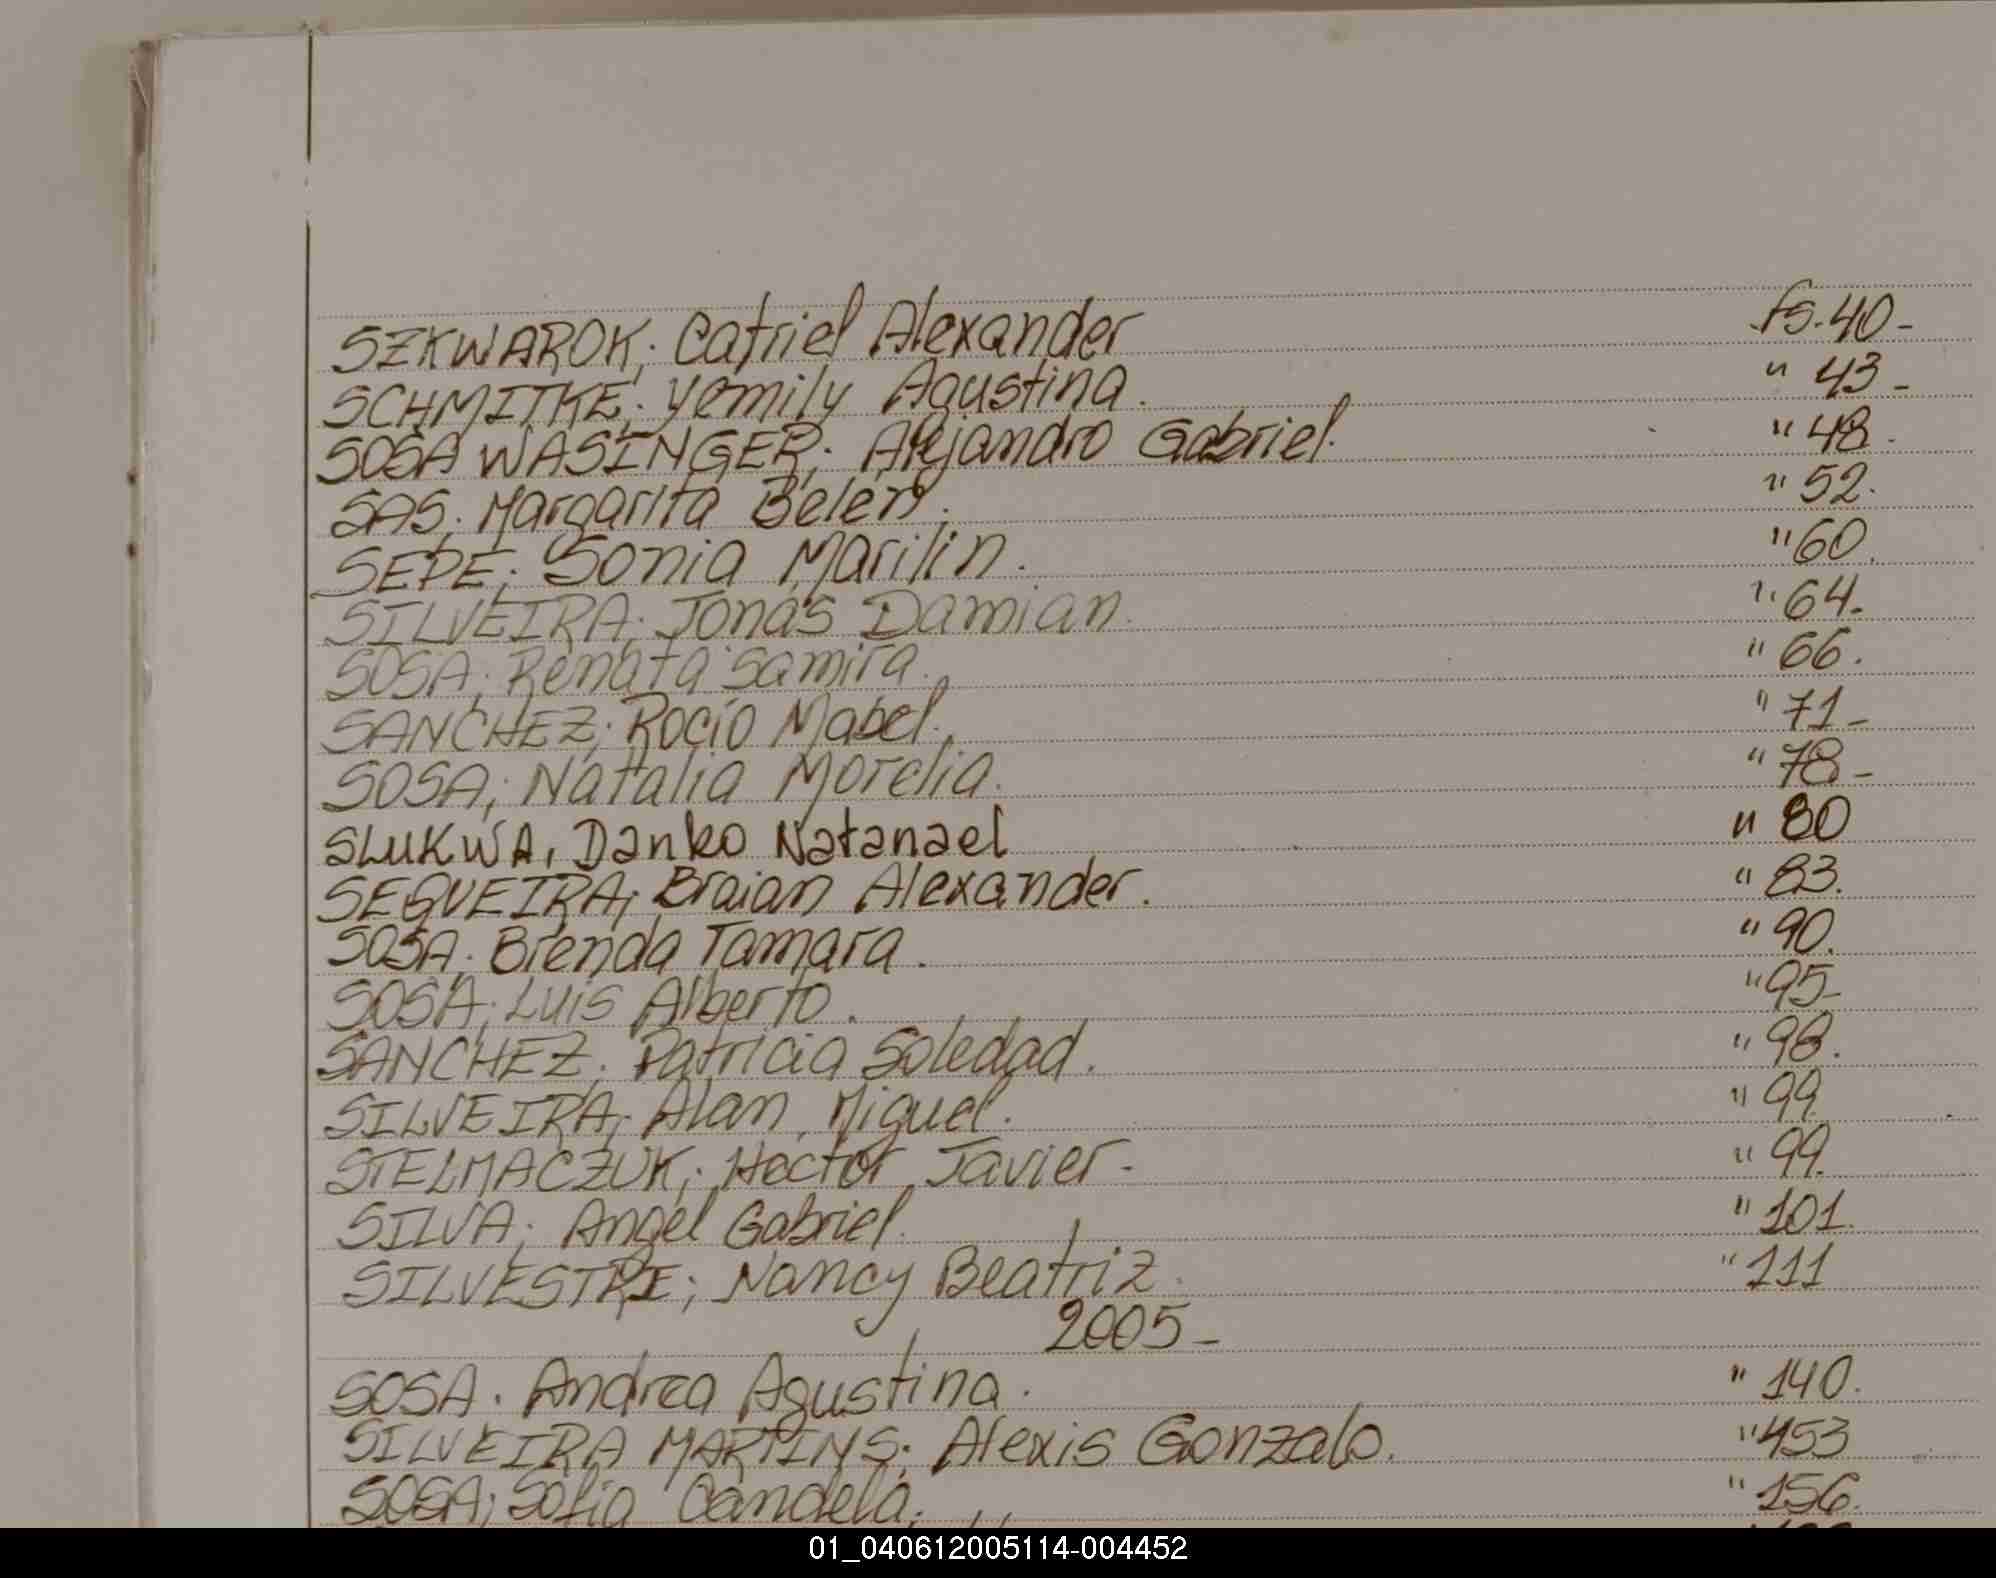 SZKWAROK; Catriel Alexander fs. 40-
SCHMITKE; Yemily Agustina. " 43-
SOSA WASINGER; Alejandro Gabriel. " 48.
SAS; Margarita Belén. " 52.
SEPE; Sonia Marilin. " 60.
SILVEIRA; Jonas Damian. " 64.
SOSA; Renata Samira. " 66.
SANCHEZ; Rocío Mabel. " 71-
SOSA; Natalia Morelia. " 78-
SLUKWA, Danko Natanael " 80
SEQUEIRA; Braian Alexander. " 83.
SOSA; Brenda Tamara. " 90.
SOSA; Luis Alberto. " 95-
SANCHEZ; Patricia Soledad. " 98.
SILVEIRA; Alan Miguel. " 99.
STELMACZUK; Hector Javier- " 99.
SILVA; Angel Gabriel. " 101.
SILVESTRI; Nancy Beatriz. " 111
2005-
SOSA. Andrea Agustina. " 140.
SILVEIRA MARTINS; Alexis Gonzalo. " 153
SOSA; Sofia Candela. " 156.
01_040612005114-004452